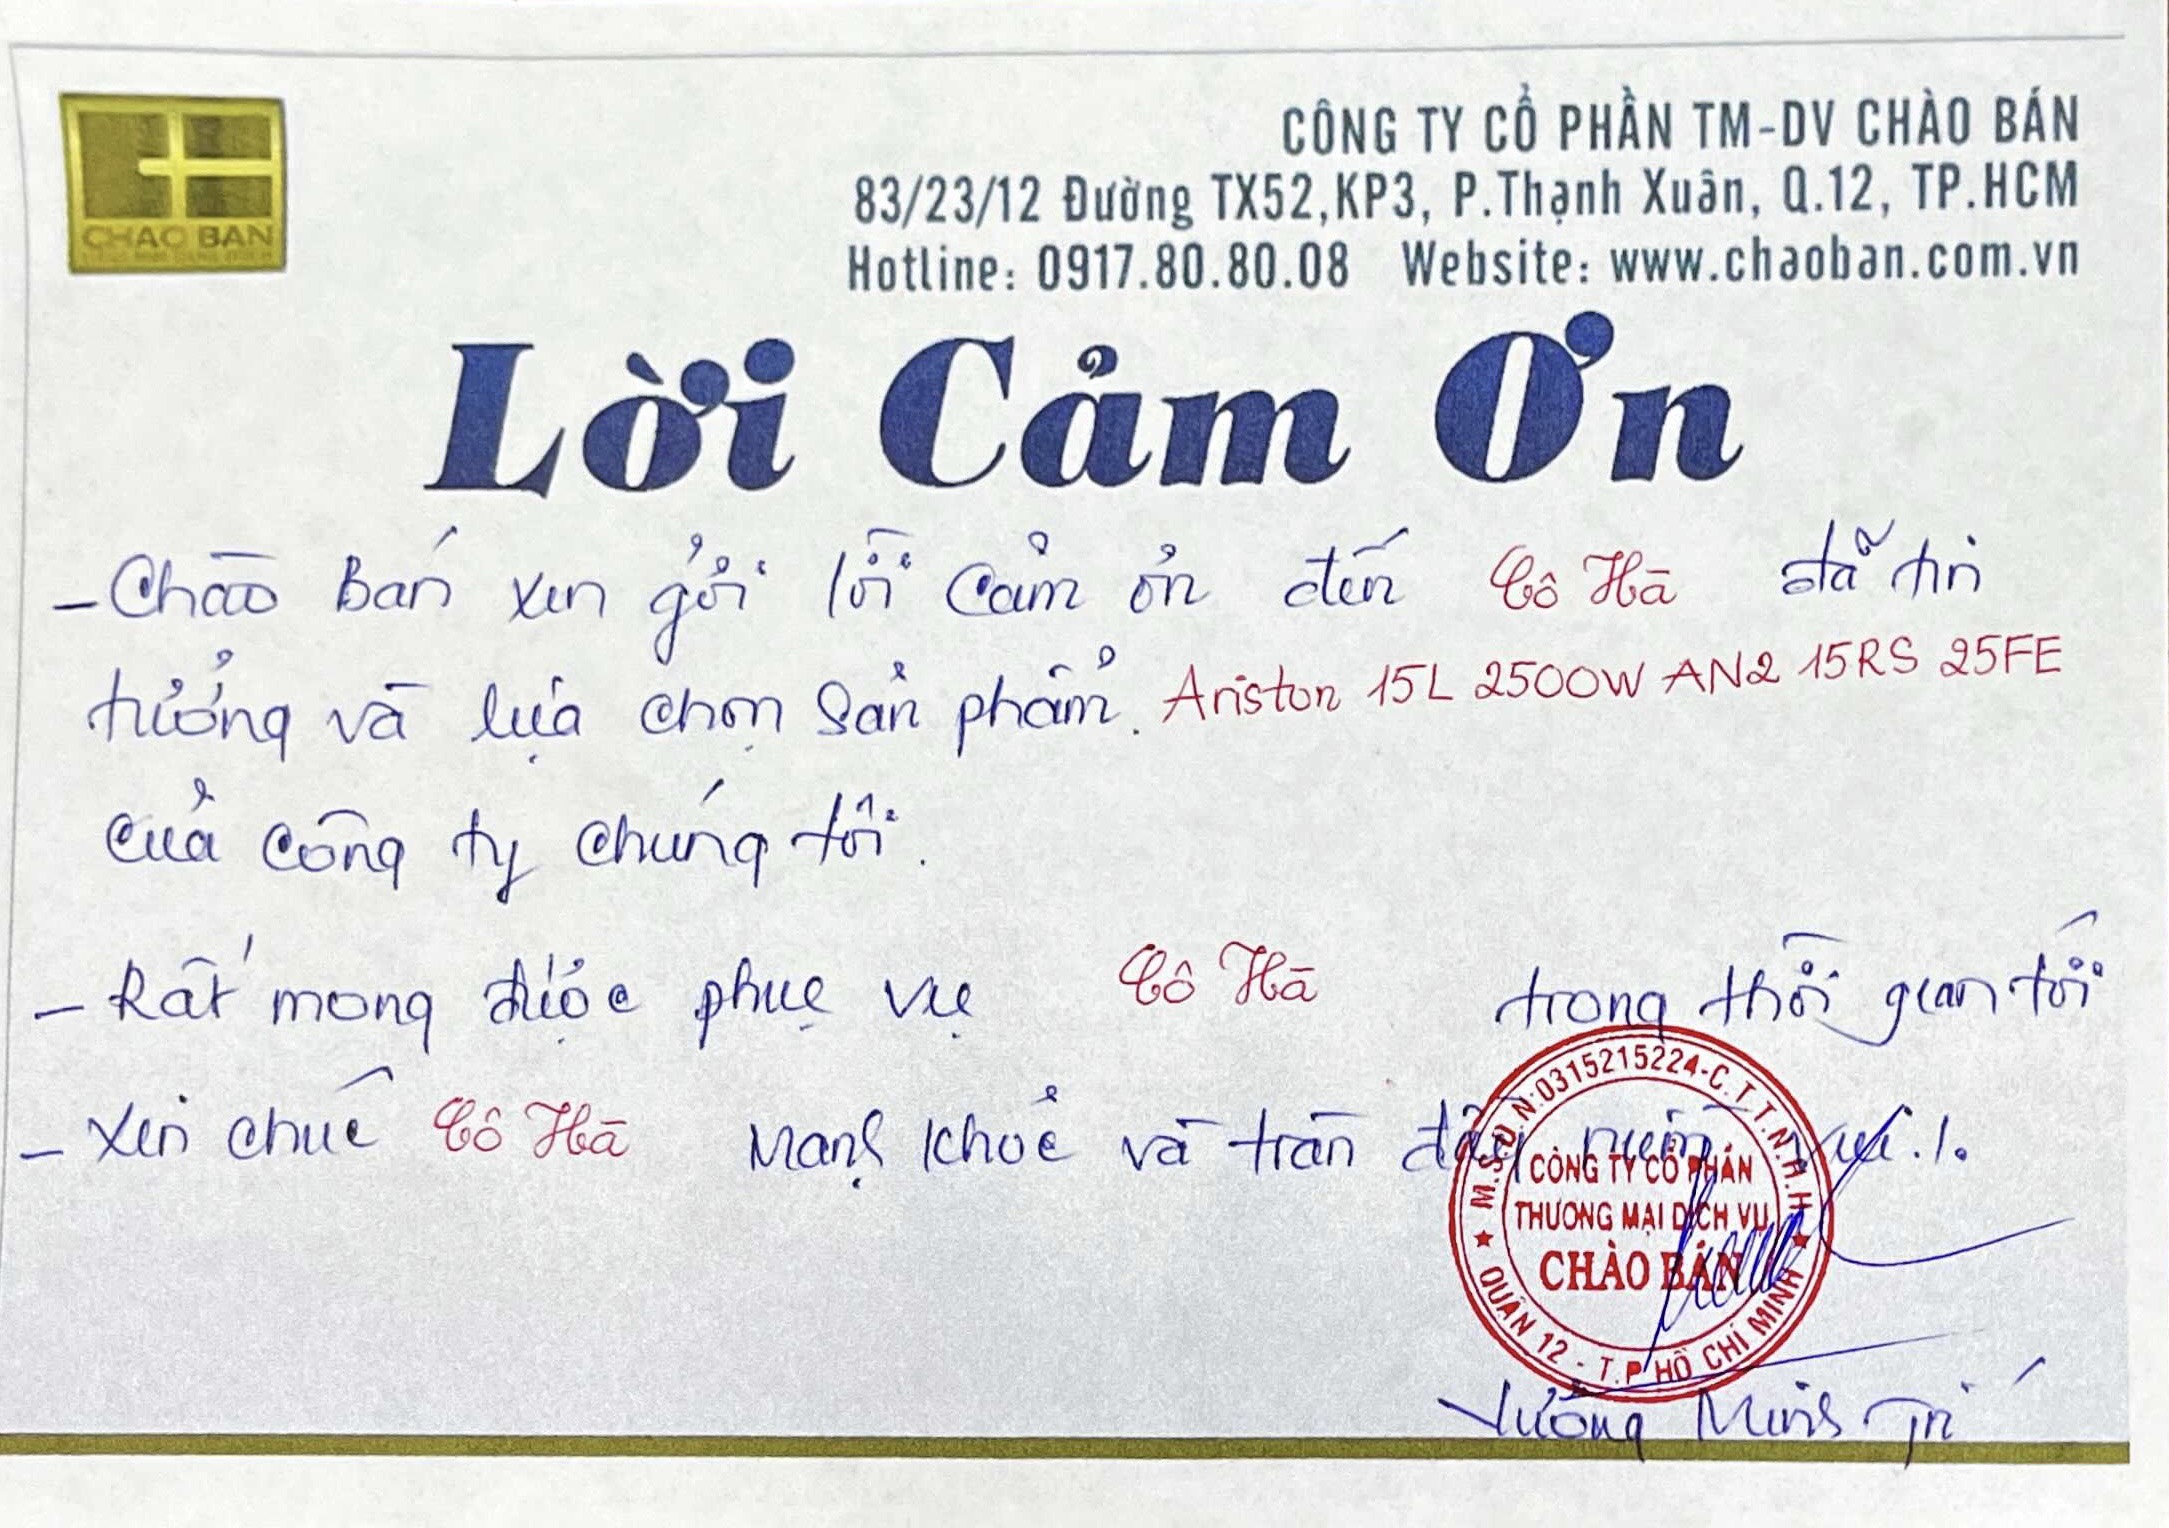 CHAO BAN
CÔNG TY CỔ PHẦN TM-DV CHÀO BÁN
83/23/12 Đường TX52,KP3, P.Thạnh Xuân, Q.12, TP.HCM
Hotline: 0917.80.80.08 Website: www.chaoban.com.vn
Lời Cảm Ơn
- Chào Bán xin gửi lời cảm ơn đến Cô Hà đã tin
tưởng và lựa chọn sản phẩm. Ariston 15L 2500W AN2 15RS 25FE
của công ty chúng tôi.
- Rất mong được phục vụ Cô Hà trong thời gian tới
- Xin chúc Cô Hà mạnh khỏe và tràn đầy niềm vui./.
M.S.D.N:0315215224-C.T.T.N.H.H
CÔNG TY CỔ PHẦN
THƯƠNG MẠI DỊCH VỤ
CHÀO BÁN
QUẬN 12 - T.P HỒ CHÍ MINH
Vương Minh Trí